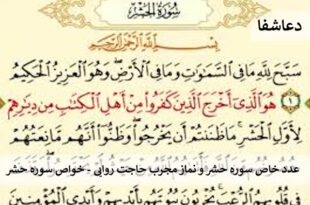 سُورَةُ الْحَشْرِ
دعاشفا
بِسْمِ اللَّهِ الرَّحْمَٰنِ الرَّحِيمِ
سَبَّحَ لِلَّهِ مَا فِي السَّمَاوَاتِ وَمَا فِي الْأَرْضِ وَهُوَ الْعَزِيزُ الْحَكِيمُ
١ هُوَ الَّذِي أَخْرَجَ الَّذِينَ كَفَرُوا مِنْ أَهْلِ الْكِتَابِ مِن دِيَارِهِمْ
لِأَوَّلِ الْحَشْرِ مَا ظَنَنتُمْ أَن يَخْرُجُوا وَظَنُّوا أَنَّهُم مَّانِعَتُهُمْ
عدد خاص سوره حشر و نماز مجرب حاجت روایی - خواص سوره حشر
فِي قُلُوبِهِمُ الرُّعْبَ يُخْرِبُونَ بُيُوتَهُم بِأَيْدِيهِمْ وَأَيْدِي الْمُؤْمِنِينَ